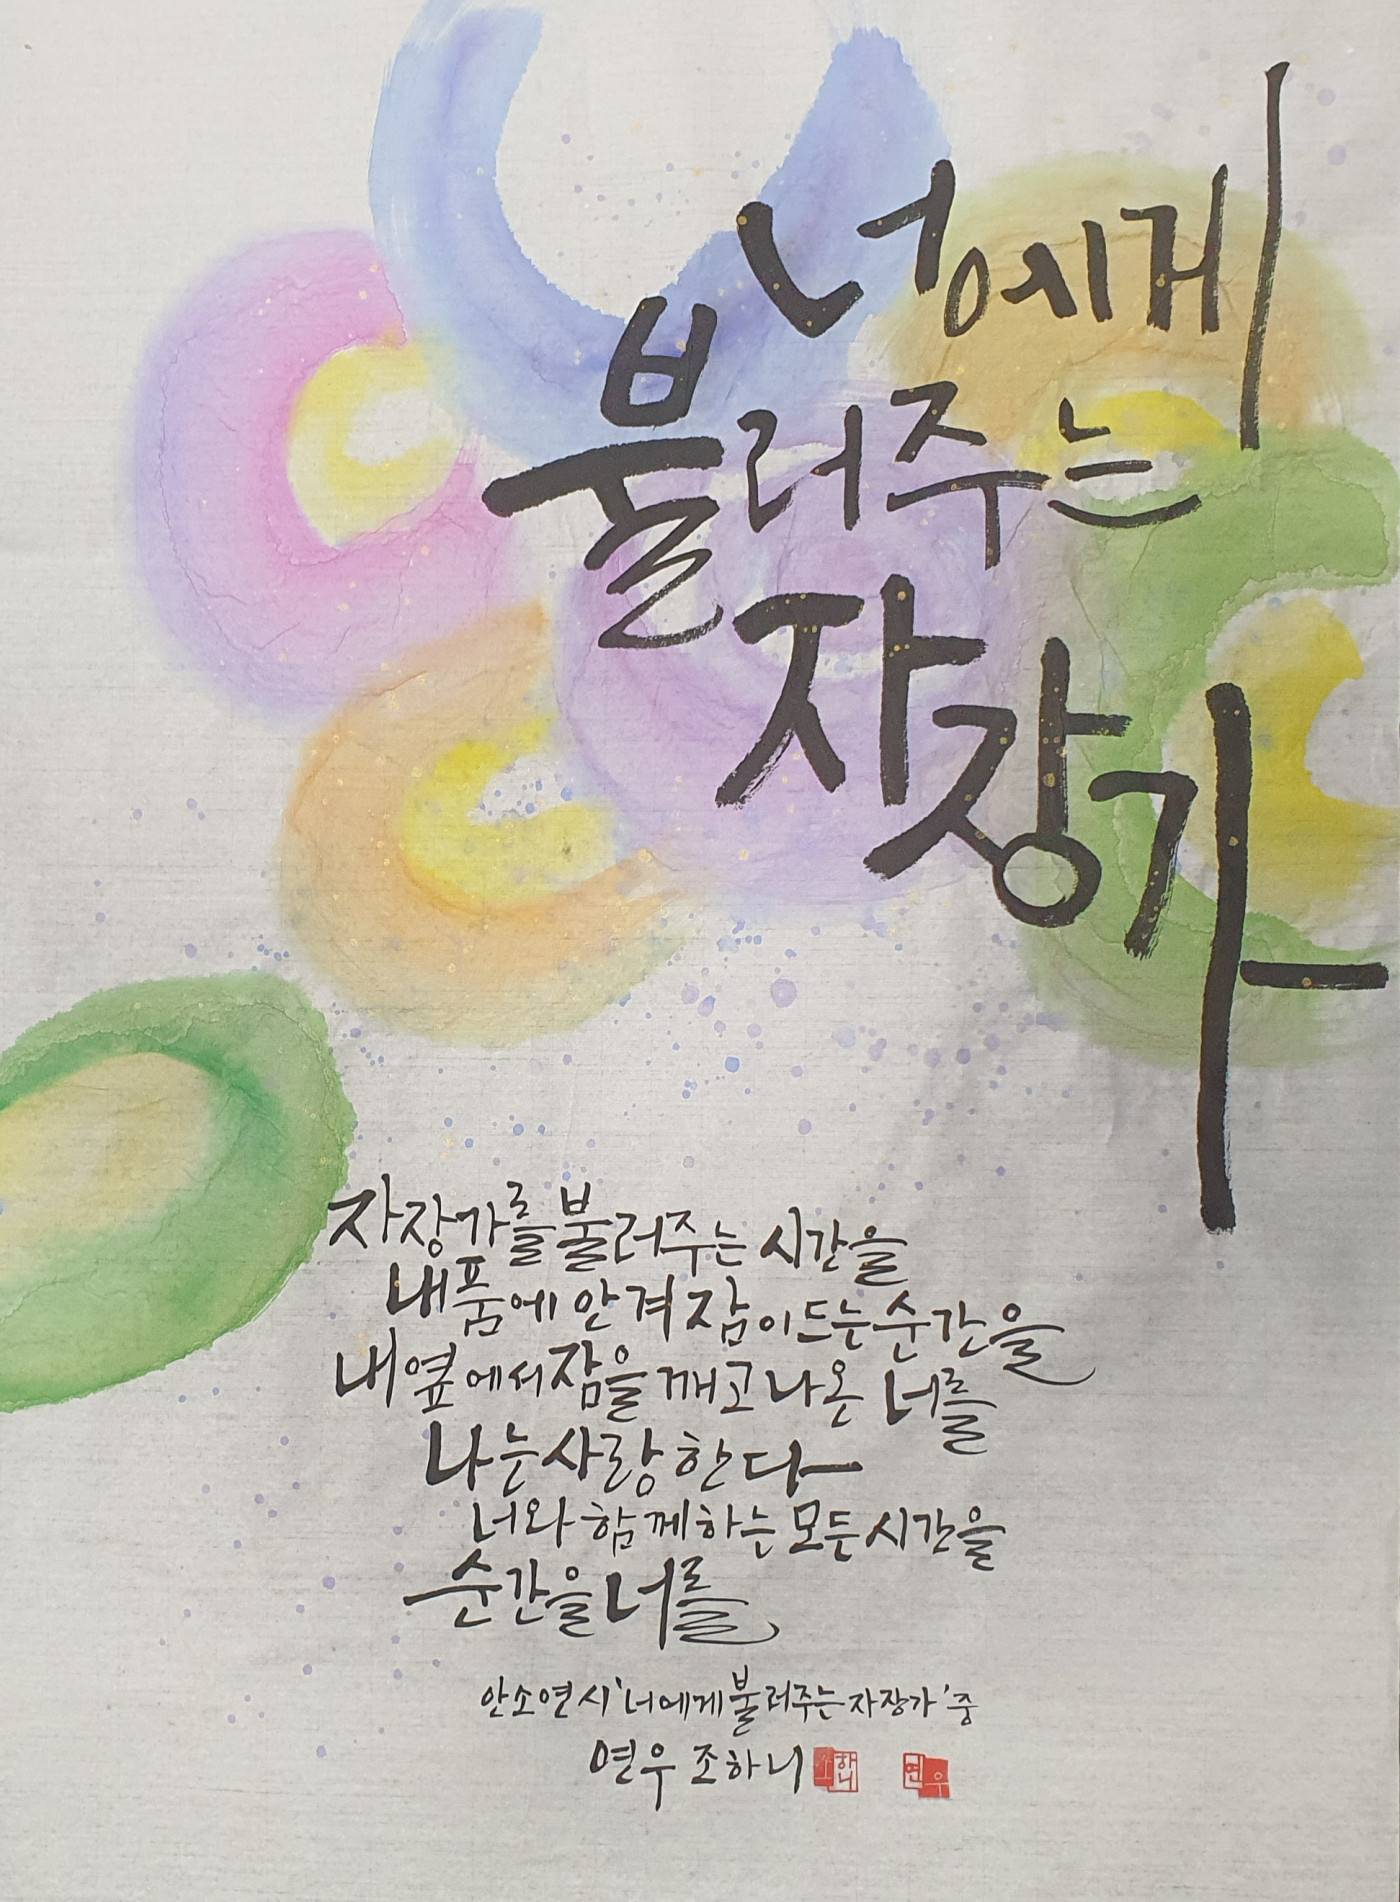 너에게
불러주는
자장가
자장가를 불러주는 시간을
내 품에 안겨 잠이 드는 순간을
내 옆에서 잠을 깨고 나온 너를
나는 사랑한다
너와 함께하는 모든 시간을
순간을 너를
안소연 시 '너에게 불러주는 자장가' 중
연우 조하니 조하니 연우